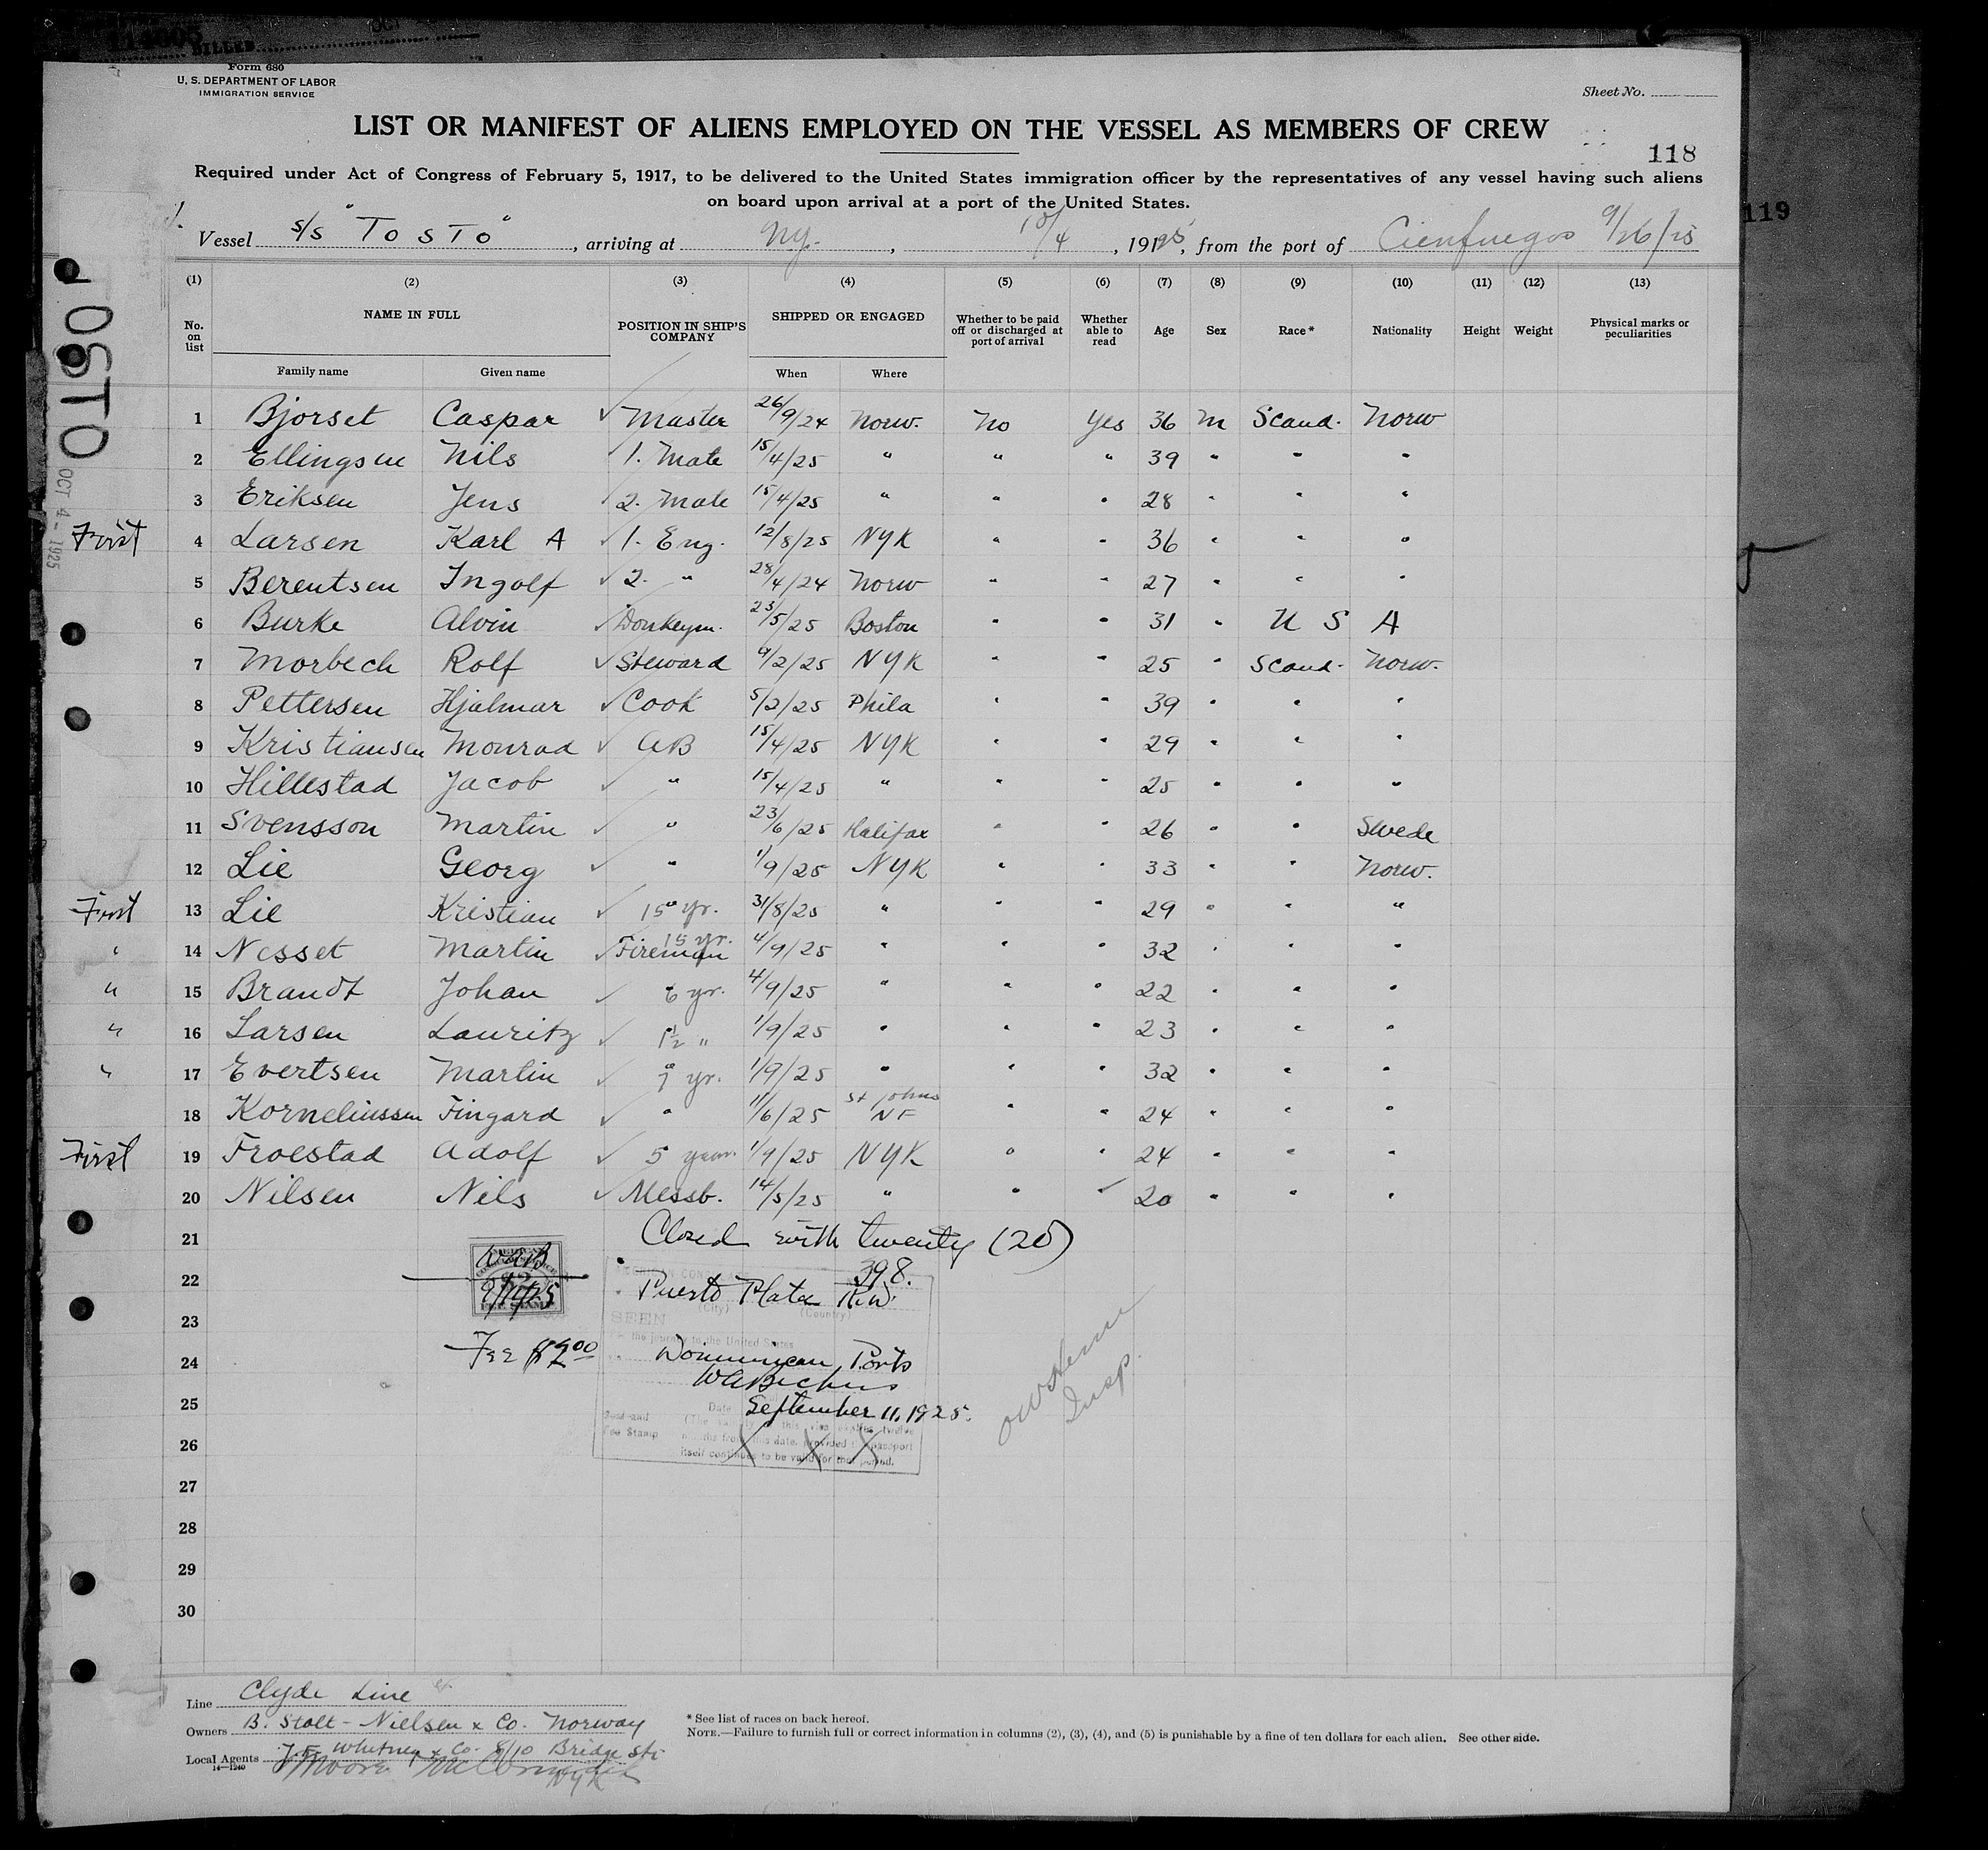 BILLED
Form 680
U. S. DEPARTMENT OF LABOR
IMMIGRATION SERVICE
Sheet No.
LIST OR MANIFEST OF ALIENS EMPLOYED ON THE VESSEL AS MEMBERS OF CREW
118
119
Required under Act of Congress of February 5, 1917, to be delivered to the United States immigration officer by the representatives of any vessel having such aliens
on board upon arrival at a port of the United States.
Vessel S/S "TOSTO", arriving at NY., 10/4, 1925, from the port of Cienfuegos 9/26/25
TOSTO
OCT 4 - 1925
(1) (2) (3) (4) (5) (6) (7) (8) (9) (10) (11) (12) (13)
No. on list NAME IN FULL POSITION IN SHIP'S COMPANY SHIPPED OR ENGAGED Whether to be paid off or discharged at port of arrival Whether able to read Age Sex Race* Nationality Height Weight Physical marks or peculiarities
Family name Given name When Where
1 Bjorset Caspar ✓ Master 26/9/24 Norw. No Yes 36 M Scand. Norw
2 Ellingsen Nils ✓ 1. Mate 15/4/25 " " " 39 " " "
3 Eriksen Jens ✓ 2. Mate 15/4/25 " " " 28 " " "
First 4 Larsen Karl A ✓ 1. Eng. 12/8/25 NYK " " 36 " " "
5 Berentsen Ingolf ✓ 2. " 28/4/24 Norw " " 27 " " "
6 Burke Alvin ✓ Donkeym. 23/5/25 Boston " " 31 " U S A
7 Morbech Rolf ✓ Steward 9/2/25 NYK " " 25 " Scand. Norw.
8 Pettersen Hjalmar ✓ Cook 5/2/25 Phila " " 39 " " "
9 Kristiansen Monrad ✓ AB 15/4/25 NYK " " 29 " " "
10 Hillestad Jacob ✓ " 15/4/25 " " " 25 " " "
11 Svensson Martin ✓ " 23/6/25 Halifax " " 26 " " Swede
12 Lie Georg ✓ " 1/9/25 NYK " " 33 " " Norw.
First 13 Lie Kristian ✓ " 15 yr. 31/8/25 " " " 29 " " "
" 14 Nesset Martin ✓ Fireman 15 yr. 4/9/25 " " " 32 " " "
" 15 Brandt Johan ✓ " 6 yr. 4/9/25 " " " 22 " " "
" 16 Larsen Lauritz ✓ " 1½ " 1/9/25 " " " 23 " " "
" 17 Evertsen Martin ✓ " 7 yr. 1/9/25 " " " 32 " " "
18 Korneliussen Fingard ✓ " 11/6/25 St Johns NF " " 24 " " "
First 19 Froestad Adolf ✓ 5 year 1/9/25 NYK " " 24 " " "
20 Nilsen Nils ✓ Messb. 14/5/25 " " ✓ 20 " " "
21 Closed with twenty (20)
22 398.
Puerto Plata R.D.
(City) (Country)
23 SEEN
the journey to the United States
24 Fee $2.00 Dominican Ports
25 Date September 11, 1925.
Seal and Fee Stamp
26 itself continues to be valid for that period.
27
28
29
30
Insp.
Line Clyde Line
Owners B. Stolt-Nielsen & Co. Norway
Local Agents J. F. Whitney & Co. 8/10 Bridge Str
Moore McCormack
NYK
14—1240
* See list of races on back hereof.
NOTE.—Failure to furnish full or correct information in columns (2), (3), (4), and (5) is punishable by a fine of ten dollars for each alien. See other side.